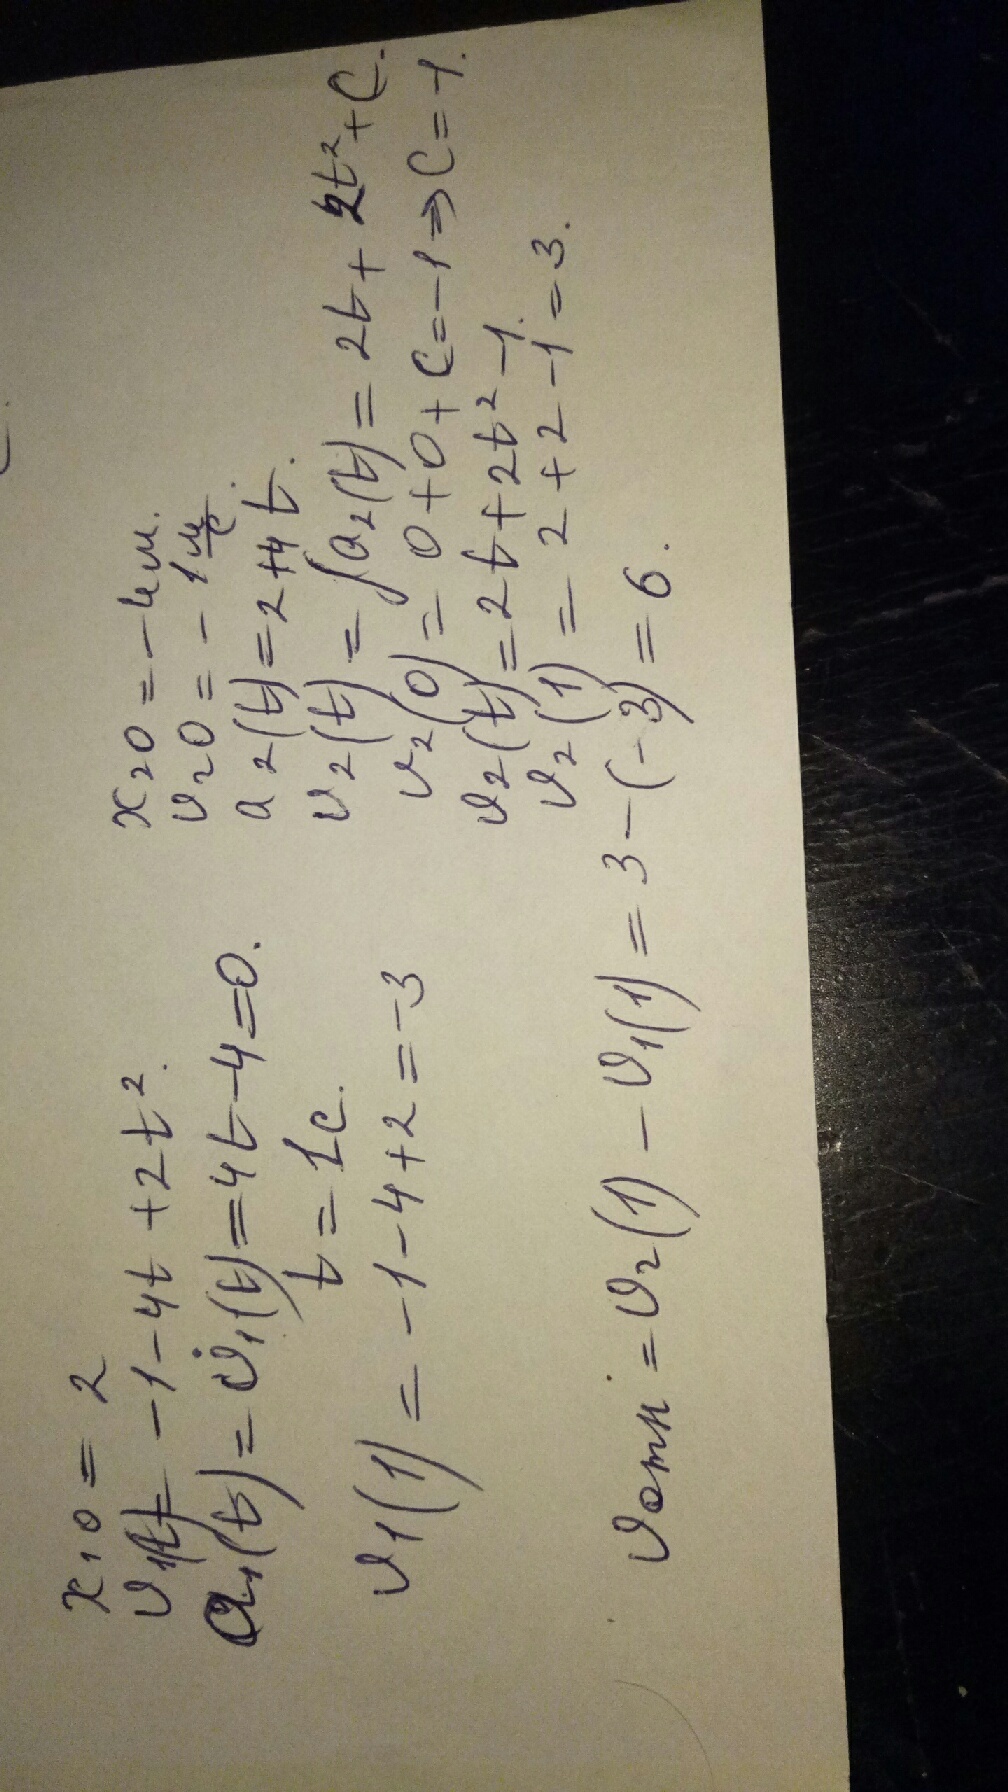 x₁₀ = 2
υ₁(t) = -1 - 4t + 2t².
a₁(t) = υ̇₁(t) = 4t - 4 = 0.
t = 1c.
υ₁(1) = -1 - 4 + 2 = -3
x₂₀ = -4м.
υ₂₀ = -1 м/с.
a₂(t) = 2 + 4t.
υ₂(t) = ∫a₂(t) = 2t + 2t² + C.
υ₂(0) = 0 + 0 + C = -1 ⇒ C = -1.
υ₂(t) = 2t + 2t² - 1.
υ₂(1) = 2 + 2 - 1 = 3.
υотн = υ₂(1) - υ₁(1) = 3 - (-3) = 6.